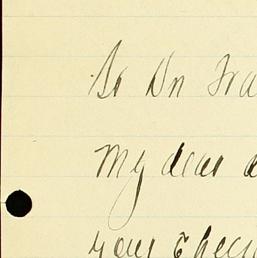 To Dr Fra
My dear d
your Chec